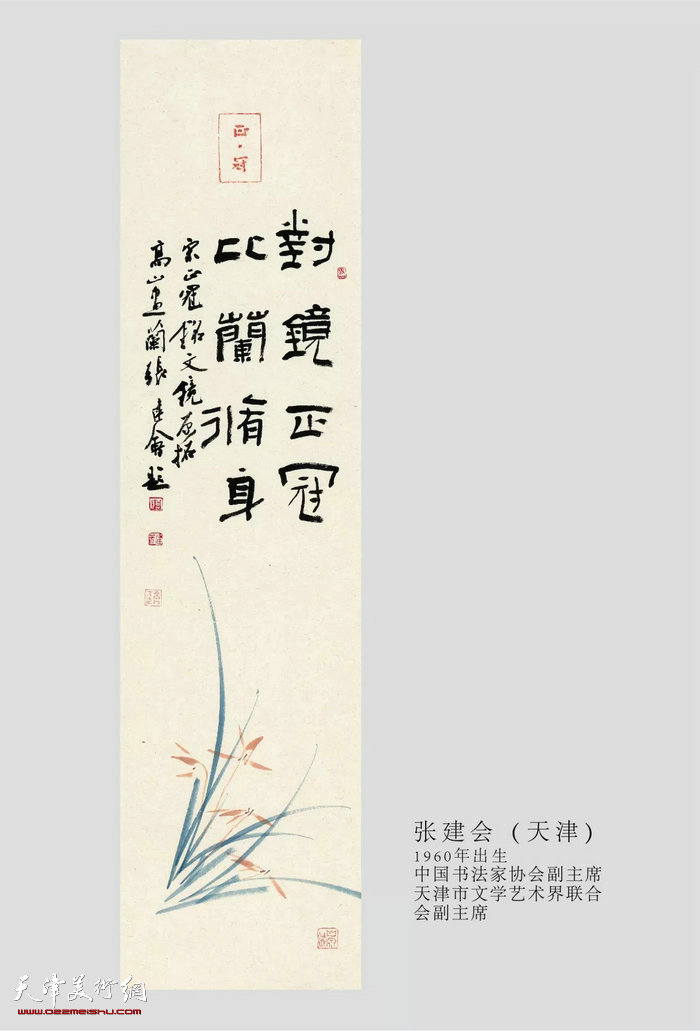 正·冠
對鏡正冠
比蘭脩身
宋正冠銘文鏡原拓
高山畫蘭張建會題
张建会（天津）
1960年出生
中国书法家协会副主席
天津市文学艺术界联合
会副主席
天津美術網
www.022meishu.com